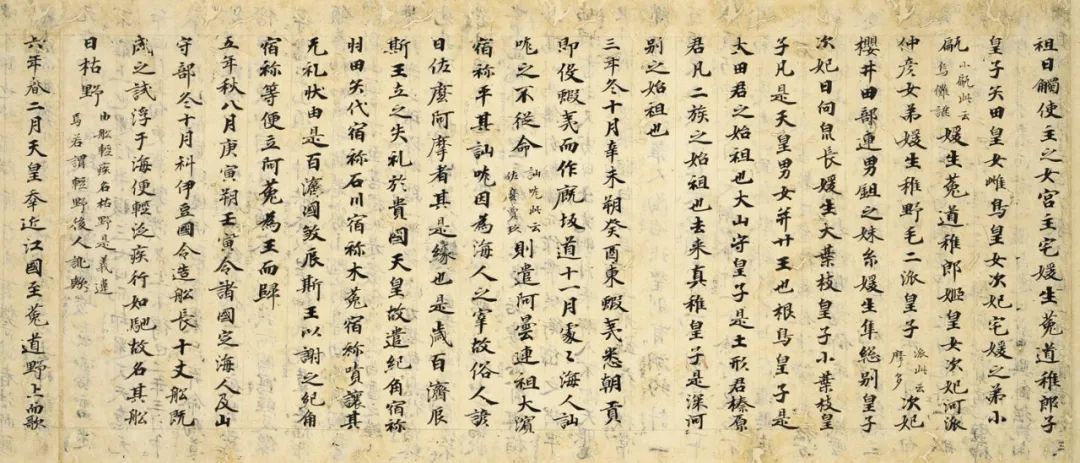 祖日觸使主之女宮主宅媛生菟道稚郎子
皇子矢田皇女雌鳥皇女次妃宅媛之弟小
甂小甂此云烏儺謎媛生菟道稚郎姬皇女次妃河派
仲彦女弟媛生稚野毛二派皇子派此云摩多次妃
櫻井田部連男鉏之妹糸媛生隼総別皇子
次妃日向泉長媛生大葉枝皇子小葉枝皇
子凡是天皇男女并廿王也根鳥皇子是
大田君之始祖也大山守皇子是土形君榛原
君凡二族之始祖也去来真稚皇子是深河
別之始祖也
三年冬十月辛未朔癸酉東蝦夷悉朝貢
即役蝦夷而作厩坂道十一月處々海人訕
哤之不從命訕哤此云佐麼賣玖則遣阿曇連祖大濱
宿祢平其訕哤因為海人之宰故俗人諺
曰佐麼阿摩者其是緣也是歲百濟辰
斯王立之失礼於貴國天皇故遣紀角宿祢
羽田矢代宿祢石川宿祢木菟宿祢嘖讓其
无礼狀由是百濟國煞辰斯王以謝之紀角
宿祢等便立阿菟為王而歸
五年秋八月庚寅朔壬寅令諸國定海人及山
守部冬十月科伊豆國令造舩長十丈舩既
成之試浮于海便輕泛疾行如馳故名其舩
曰枯野由舩輕疾名枯野是義違焉若謂輕野後人訛歟
六年春二月天皇幸近江國至菟道野上而歌